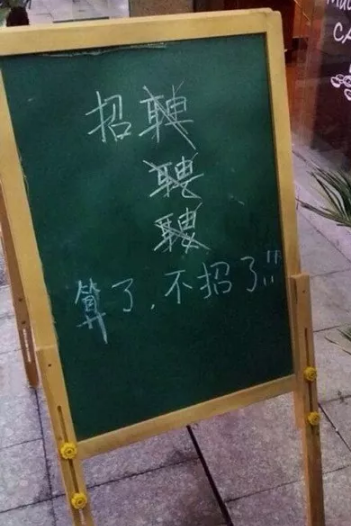 招聘
聘
聘
算了，不招了!!
CA